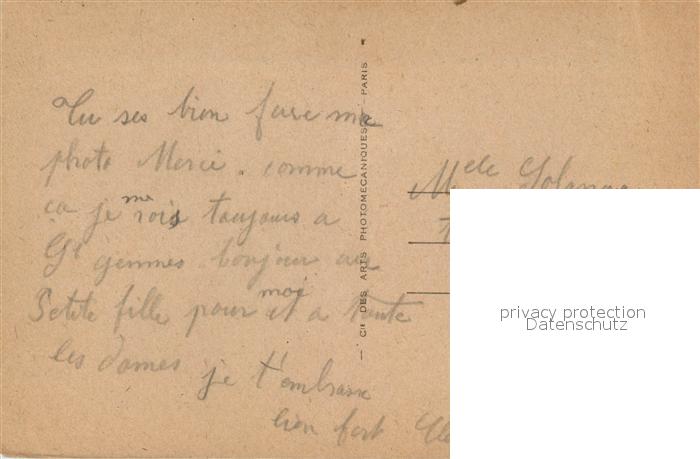 Tu ses bien faire ma
photo Merci. comme
ça je me vois toujours a
St gemmes bonjour aux
Petite fille pour moi et a toute
les dames je t'embrasse
bien fort
CIE DES ARTS PHOTOMECANIQUES — PARIS
Melle Solange
privacy protection
Datenschutz